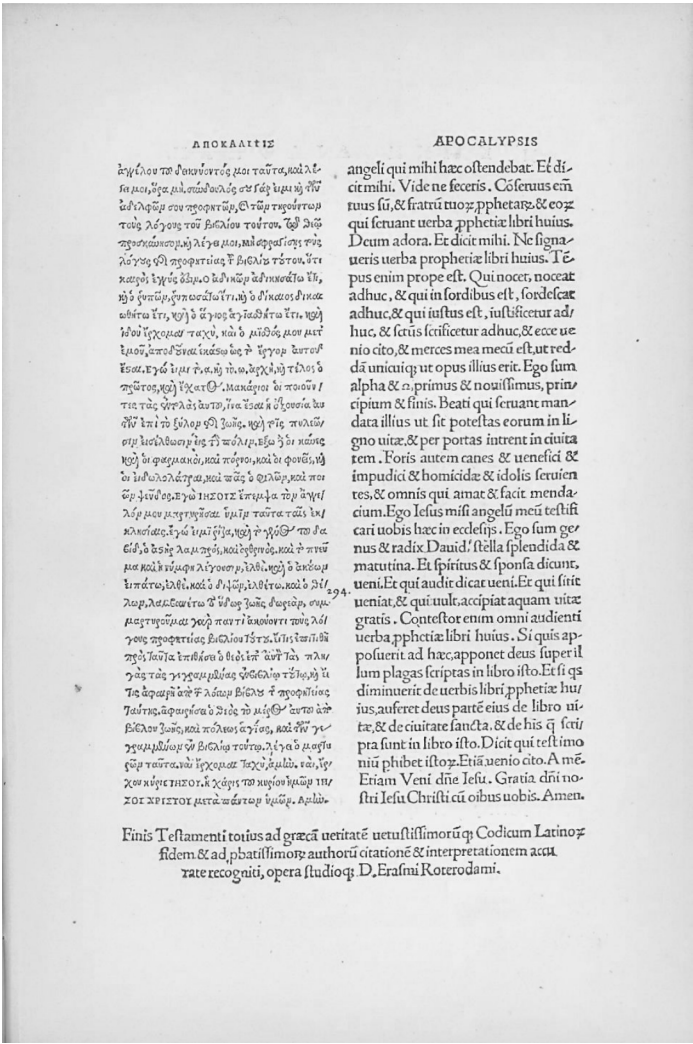 ΑΠΟΚΑΛΙΨΙΣ
ἀγγέλου τοῦ δεικνύοντός μοι ταῦτα, καὶ λέ
γει μοι, ὅρα μὴ, σύνδουλός σου γάρ εἰμι καὶ τῶν
ἀδελφῶν σου προφητῶν, καὶ τῶν τηρούντων
τοὺς λόγους τοῦ βιβλίου τούτου. τῷ θεῷ
προσκύνησον, καὶ λέγει μοι, Μὴ σφραγίσῃς τοὺς
λόγους τῆς προφητείας τοῦ βιβλίου τούτου. ὅτι
καιρὸς ἐγγύς ἐστιν. Ο ἀδικῶν ἀδικησάτω ἔτι,
καὶ ὁ ῥυπῶν, ῥυπωσάτω ἔτι. καὶ ὁ δίκαιος δικαι
ωθήτω ἔτι, καὶ ὁ ἅγιος ἁγιασθήτω ἔτι, καὶ
ἰδοὺ ἔρχομαι ταχὺ, καὶ ὁ μισθός μου μετ
ἐμοῦ, ἀποδοῦναι ἑκάστῳ ὡς τὸ ἔργον αὐτοῦ
ἔσται. Εγώ εἰμι τὸ, α, καὶ τὸ. ω, ἀρχὴ, καὶ τέλος ὁ
πρῶτος, καὶ ἔσχατος. Μακάριοι οἱ ποιοῦν/
τες τὰς ἐντολὰς αὐτοῦ, ἵνα ἔσται ἡ ἐξουσία αὐ
τῶν ἐπὶ τὸ ξύλον τῆς ζωῆς. καὶ τοῖς πυλῶ/
σιν εἰσέλθωσιν εἰς τὴν πόλιν, Εξω δὲ οἱ κύνες
καὶ οἱ φαρμακοὶ, καὶ πόρνοι, καὶ οἱ φονεῖς, καὶ
οἱ εἰδωλολάτραι, καὶ πᾶς ὁ φιλῶν, καὶ ποι
ῶν ψεῦδος. Εγὼ ΙΗΣΟΥΣ ἔπεμψα τὸν ἄγγε/
λόν μου μαρτυρῆσαι ὑμῖν ταῦτα ταῖς ἐκ
κλησίαις. ἐγώ εἰμι ῥίζα, καὶ τὸ γένος τοῦ δα
βίδ, ὁ ἀστὴρ λαμπρὸς, καὶ ὀρθρινός. καὶ τὸ πνεῦ
μα καὶ ἡ νύμφη λέγουσιν, ἐλθὲ. καὶ ὁ ἀκούων
εἰπάτω, ἐλθέ. καὶ ὁ διψῶν, ἐλθέτω. καὶ ὁ θέ/
λων, λαμβανέτω τὸ ὕδωρ ζωῆς δωρεάν, συμ
μαρτυροῦμαι γὰρ παντὶ ἀκούοντι τοὺς λό/
γους προφητείας βιβλίου τούτου. εἴ τις ἐπιτιθῇ
πρὸς ταῦτα ἐπιθήσει ὁ θεὸς ἐπ' αὐτὸν τὰς πλη/
γὰς τὰς γεγραμμένας ἐν βιβλίῳ τούτῳ, καὶ εἴ
τις ἀφαιρῇ ἀπὸ τῶν λόγων βίβλου τῆς προφητείας
ταύτης. ἀφαιρήσει ὁ θεὸς τὸ μέρος αὐτοῦ ἀπὸ
βίβλου ζωῆς, καὶ πόλεως ἁγίας, καὶ τῶν γε/
γραμμένων ἐν βιβλίῳ τούτῳ. λέγει ὁ μαρτυ
ρῶν ταῦτα. ναὶ ἔρχομαι ταχὺ, ἀμήν. ναὶ, ἔρ/
χου κύριε ΙΗΣΟΥ. ἡ χάρις τοῦ κυρίου ἡμῶν ΙΗ/
ΣΟΥ ΧΡΙΣΤΟΥ μετὰ πάντων ὑμῶν. Αμήν.
294.
APOCALYPSIS
angeli qui mihi hæc ostendebat. Et di/
cit mihi. Vide ne feceris. Cōseruus em̄
tuus sū, & fratrū tuoꝝ ꝓphetaꝝ & eoꝝ
qui seruant uerba ꝓphetiæ libri huius.
Deum adora. Et dicit mihi. Ne signa/
ueris uerba prophetiæ libri huius. Tē/
pus enim prope est. Qui nocet, noceat
adhuc, & qui in sordibus est, sordescat
adhuc, & qui iustus est, iustificetur ad/
huc, & sctūs sctificetur adhuc, & ecce ue
nio cito, & merces mea mecū est, ut red/
dā unicuiqꝫ ut opus illius erit. Ego sum
alpha & ω, primus & nouissimus, prin/
cipium & finis. Beati qui seruant man/
data illius ut sit potestas eorum in li/
gno uitæ, & per portas intrent in ciuita
tem. Foris autem canes & uenefici &
impudici & homicidæ & idolis seruien
tes, & omnis qui amat & facit menda/
cium. Ego Iesus misi angelū meū testifi
cari uobis hæc in ecclesijs. Ego sum ge/
nus & radix Dauid. stella splendida &
matutina. Et spiritus & sponsa dicunt,
ueni. Et qui audit dicat ueni. Et qui sitit
ueniat, & qui uult, accipiat aquam uitæ
gratis. Contestor enim omni audienti
uerba ꝓphetiæ libri huius. Si quis ap/
posuerit ad hæc, apponet deus super il
lum plagas scriptas in libro isto. Et si qs
diminuerit de uerbis libri ꝓphetiæ hu/
ius, auferet deus partē eius de libro ui/
tæ, & de ciuitate sancta. & de his q̄ scri/
pta sunt in libro isto. Dicit qui testimo
niū ꝑhibet istoꝝ. Etiā, uenio cito. A mē.
Etiam Veni dñe Iesu. Gratia dñi no/
stri Iesu Christi cū oibus uobis. Amen.
Finis Testamenti totius ad græcā ueritatē uetustissimorūqꝫ Codicum Latinoꝝ
fidem & ad ꝓbatissimoꝝ authorū citationē & interpretationem accu
rate recogniti, opera studioqꝫ D. Erasmi Roterodami.